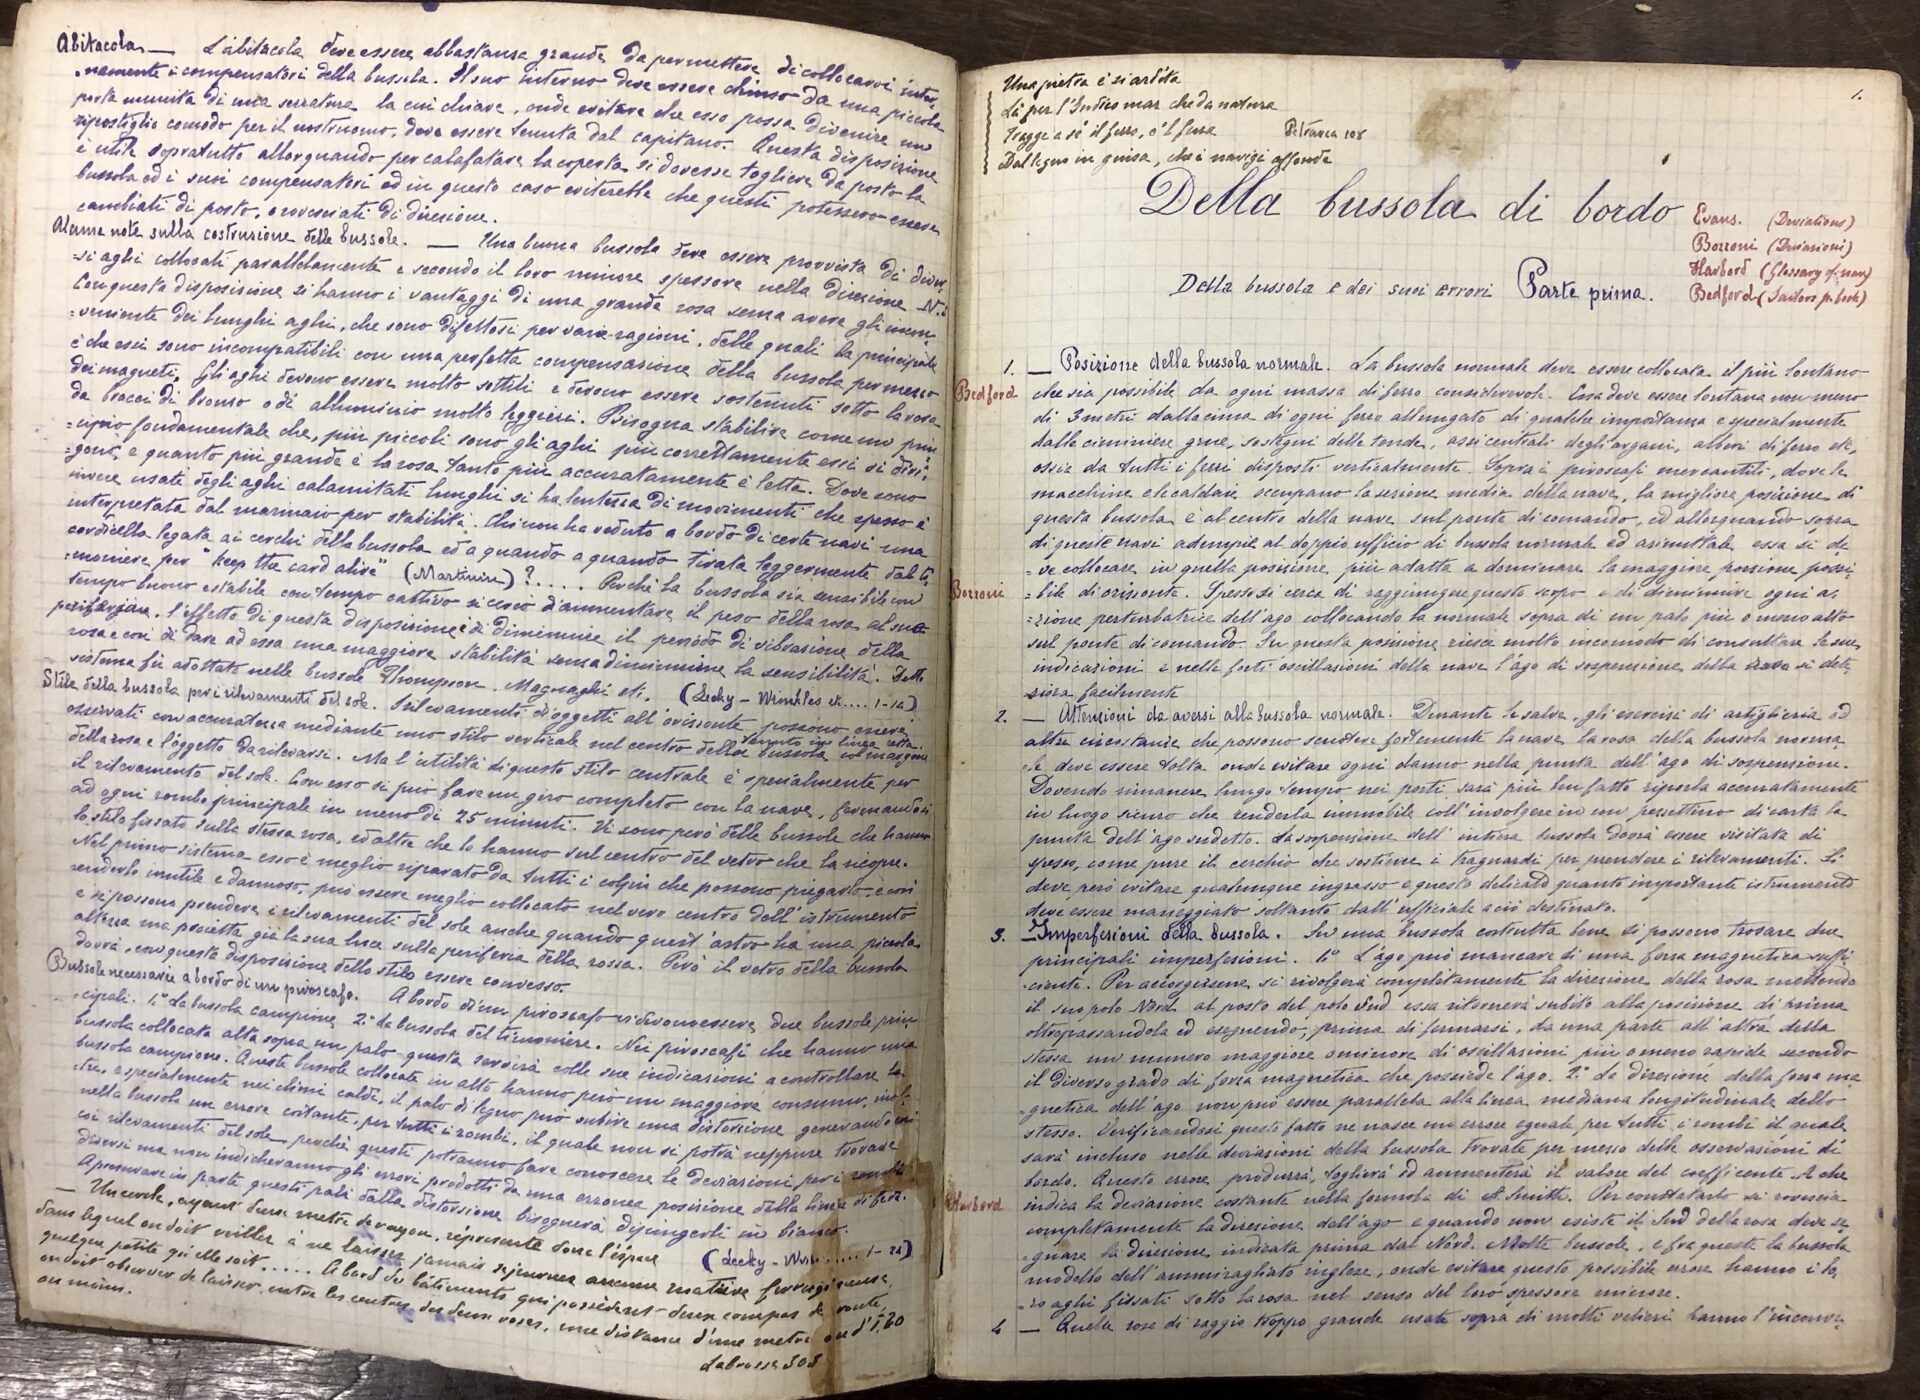 Abitacola — L'abitacola deve essere abbastanza grande da permettere di collocarvi inter-
namente i compensatori della bussola. Il suo interno deve essere chiuso da una piccola
porta munita di una serratura la cui chiave, onde evitare che esso possa divenire un
ripostiglio comodo per il nostruomo, deve essere tenuta dal capitano. Questa disposizione
è utile sopratutto allorquando per calafatare la coperta si dovesse togliere da posto la
bussola ed i suoi compensatori ed in questo caso eviterebbe che questi potessero essere
cambiati di posto, o rovesciati di direzione.
Alcune note sulla costruzione delle bussole. — Una buona bussola deve essere provvista di diver-
=si aghi collocati parallelamente e secondo il loro minore spessore nella direzione N.S
Con questa disposizione si hanno i vantaggi di una grande rosa senza avere gli incon-
=veniente dei lunghi aghi, che sono difettosi per varie ragioni, delle quali la principale
è che essi sono incompatibili con una perfetta compensazione della bussola per mezzo
dei magneti. Gli aghi devono essere molto sottili e devono essere sostenuti sotto la rosa
da bracci di bronzo o di alluminio molto leggieri. Bisogna stabilire come un prin
=cipio fondamentale che, più piccoli sono gli aghi più correttamente essi si diri-
=gono, e quanto più grande è la rosa tanto più accuratamente è letta. Dove sono
invece usati degli aghi calamitati lunghi si ha lentezza di movimenti che spesso è
interpretata dal marinaio per stabilità. Chi non ha veduto a bordo di certe navi una
cordicella legata ai cerchi della bussola ed a quando a quando tirata leggermente dal ti-
=moniere per "keep the card alive" (Martinire) ?.... Perchè la bussola sia sensibile con
tempo buono e stabile con tempo cattivo si cercò d'aumentare il peso della rosa alla sua
periferia, l'effetto di questa disposizione è di diminuire il periodo di vibrazione della
rosa e così di dare ad essa una maggiore stabilità senza diminuirne la sensibilità. Detto
sistema fu adottato nelle bussole Thompson, Magnaghi etc. (Lecky – Wrinkles ... 1-12)
Stilo della bussola per i rilevamenti del sole. I rilevamenti d'oggetti all'orizzonte possono essere
osservati con accuratezza mediante uno stilo verticale nel centro della bussola tenuto in linea retta col margine
della rosa e l'oggetto da rilevarsi. Ma l'utilità di questo stilo centrale è specialmente per
il rilevamento del sole. Con esso si può fare un giro completo con la nave, fermandosi
ad ogni rombo principale in meno di 25 minuti. Vi sono però delle bussole che hanno
lo stilo fissato sulla stessa rosa, ed altre che lo hanno sul centro del vetro che la ricopre.
Nel primo sistema esso è meglio riparato da tutti i colpi che possono piegarlo, e così
renderlo inutile e dannoso, può essere meglio collocato nel vero centro dell'istrumento
e si possono prendere i rilevamenti del sole anche quando quest'astro ha una piccola
altezza ma proietta già la sua luce sulla periferia della rossa. Però il vetro della bussola
dovrà, con questa disposizione dello stilo essere convesso.
Bussole necessarie a bordo di un piroscafo. A bordo d'un piroscafo vi devono essere due bussole prin-
cipali. 1° La bussola campione 2° la bussola del timoniere. Nei piroscafi che hanno una
bussola collocata alta sopra un palo questa servirà colle sue indicazioni a controllare la
bussola campione. Queste bussole collocate in alto hanno però un maggiore consumo, inol-
=tre, e specialmente nei climi caldi, il palo di legno può subire una distorsione generando così
nella bussola un errore costante, per tutti i rombi, il quale non si potrà neppure trovare
coi rilevamenti del sole perchè questi potranno fare conoscere le deviazioni per i rombi
diversi ma non indicheranno gli errori prodotti da una erronea posizione della linea di fede.
A preservare in parte questi pali dalla distorsione bisognerà dipingerli in bianco.
(Lecky – Wrin..... 1-22)
— Un cercle, ayant deux metre de rayon, représente donc l'espace
dans lequel on doit veiller à ne laisser jamais sejourner aucune matière ferrugineuse,
quelque petite qu'elle soit..... A bord des bâtiments qui possèdent deux compas de route,
on doit observer de laisser, entre les centres des deux roses, une distance d'une metre ou d'1,20
au moins.
Labrosse 303
Una pietra è sì ardita
Là per l'Indico mar che da natura
Tragge a sè il ferro, e 'l fura
Dal legno in guisa, che i navigi affonde
Petrarca 108
1.
Della bussola di bordo
Evans. (Deviations)
Bozzoni (Deviazioni)
Harbord (Glossary of nav)
Bedford (Sailors p. book)
Della bussola e dei suoi errori Parte prima.
1. — Posizione della bussola normale. La bussola normale deve essere collocata il più lontano
Bedford
che sia possibile da ogni massa di ferro considerevole. Essa deve essere lontana non meno
di 3 metri dalla cima di ogni ferro allungato di qualche importanza e specialmente
dalle ciminiere grue, sostegni delle tende, assi centrali degli argani, alberi di ferro etc,
ossia da tutti i ferri disposti verticalmente. Sopra i piroscafi mercantili, dove le
macchine e le caldaie occupano la sezione media della nave, la migliore posizione di
questa bussola è al centro della nave sul ponte di comando, ed allorquando sopra
di queste navi adempie al doppio ufficio di bussola normale ed azimuttale essa si de
=ve collocare in quella posizione più adatta a dominare la maggiore porzione possi-
Bozzoni
=bile di orizzonte. Spesso si cerca di raggiungere questo scopo e di diminuire ogni a-
=zione perturbatrice dell'ago collocando la normale sopra di un palo più o meno alto
sul ponte di comando. In questa posizione riesce molto incomodo di consultare le sue
indicazioni e nelle forti oscillazioni della nave l'ago di sospensione della rosa si dete
=riora facilmente
2. — Attenzioni da aversi alla bussola normale. Durante le salve, gli esercizi di artiglieria od
altre circostanze che possono scuotere fortemente la nave la rosa della bussola norma
=le deve essere tolta onde evitare ogni danno nella punta dell'ago di sospensione.
Dovendo rimanere lungo tempo nei porti sarà più ben fatto riporla accuratamente
in luogo sicuro che renderla immobile coll'involgere in un pezzettino di carta la
punta dell'ago sudetto. La sospensione dell'intiera bussola dovrà essere visitata di
spesso, come pure il cerchio che sostiene i traguardi per prendere i rilevamenti. Si
deve però evitare qualunque ingrasso e questo delicato quanto importante istrumento
deve essere maneggiato soltanto dall'ufficiale a ciò destinato.
3. — Imperfezioni della bussola. In una bussola costrutta bene si possono trovare due
principali imperfezioni. 1° L'ago può mancare di una forza magnetica suffi
=ciente. Per accorgersene si rivolgerà completamente la direzione della rosa mettendo
il suo polo Nord al posto del polo Sud essa ritornerà subito alla posizione di prima
oltrepassandola ed eseguendo, prima di fermarsi, da una parte all'altra della
stessa un numero maggiore o minore di oscillazioni più o meno rapide secondo
il diverso grado di forza magnetica che possiede l'ago. 2° La direzione della forza ma
=gnetica dell'ago non può essere parallela alla linea mediana longitudinale dello
stesso. Verificandosi questo fatto ne nasce un errore eguale per tutti i rombi il quale
sarà incluso nelle deviazioni della bussola trovate per mezzo delle osservazioni di
bordo. Questo errore produrrà, toglierà od aumenterà il valore del coefficente A che
Harbord
indica la deviazione costante nella formola di A. Smith. Per constatarlo si rovescia
completamente la direzione dell'ago e quando non esiste il Sud della rosa deve se
=gnare la direzione indicata prima dal Nord. Molte bussole, e fra queste la bussola
modello dell'ammiragliato inglese, onde evitare questo possibile errore hanno i lo
=ro aghi fissati sotto la rosa nel senso del loro spessore minore.
4 — Quelle rose di raggio troppo grande usate sopra di molti velieri hanno l'inconve-